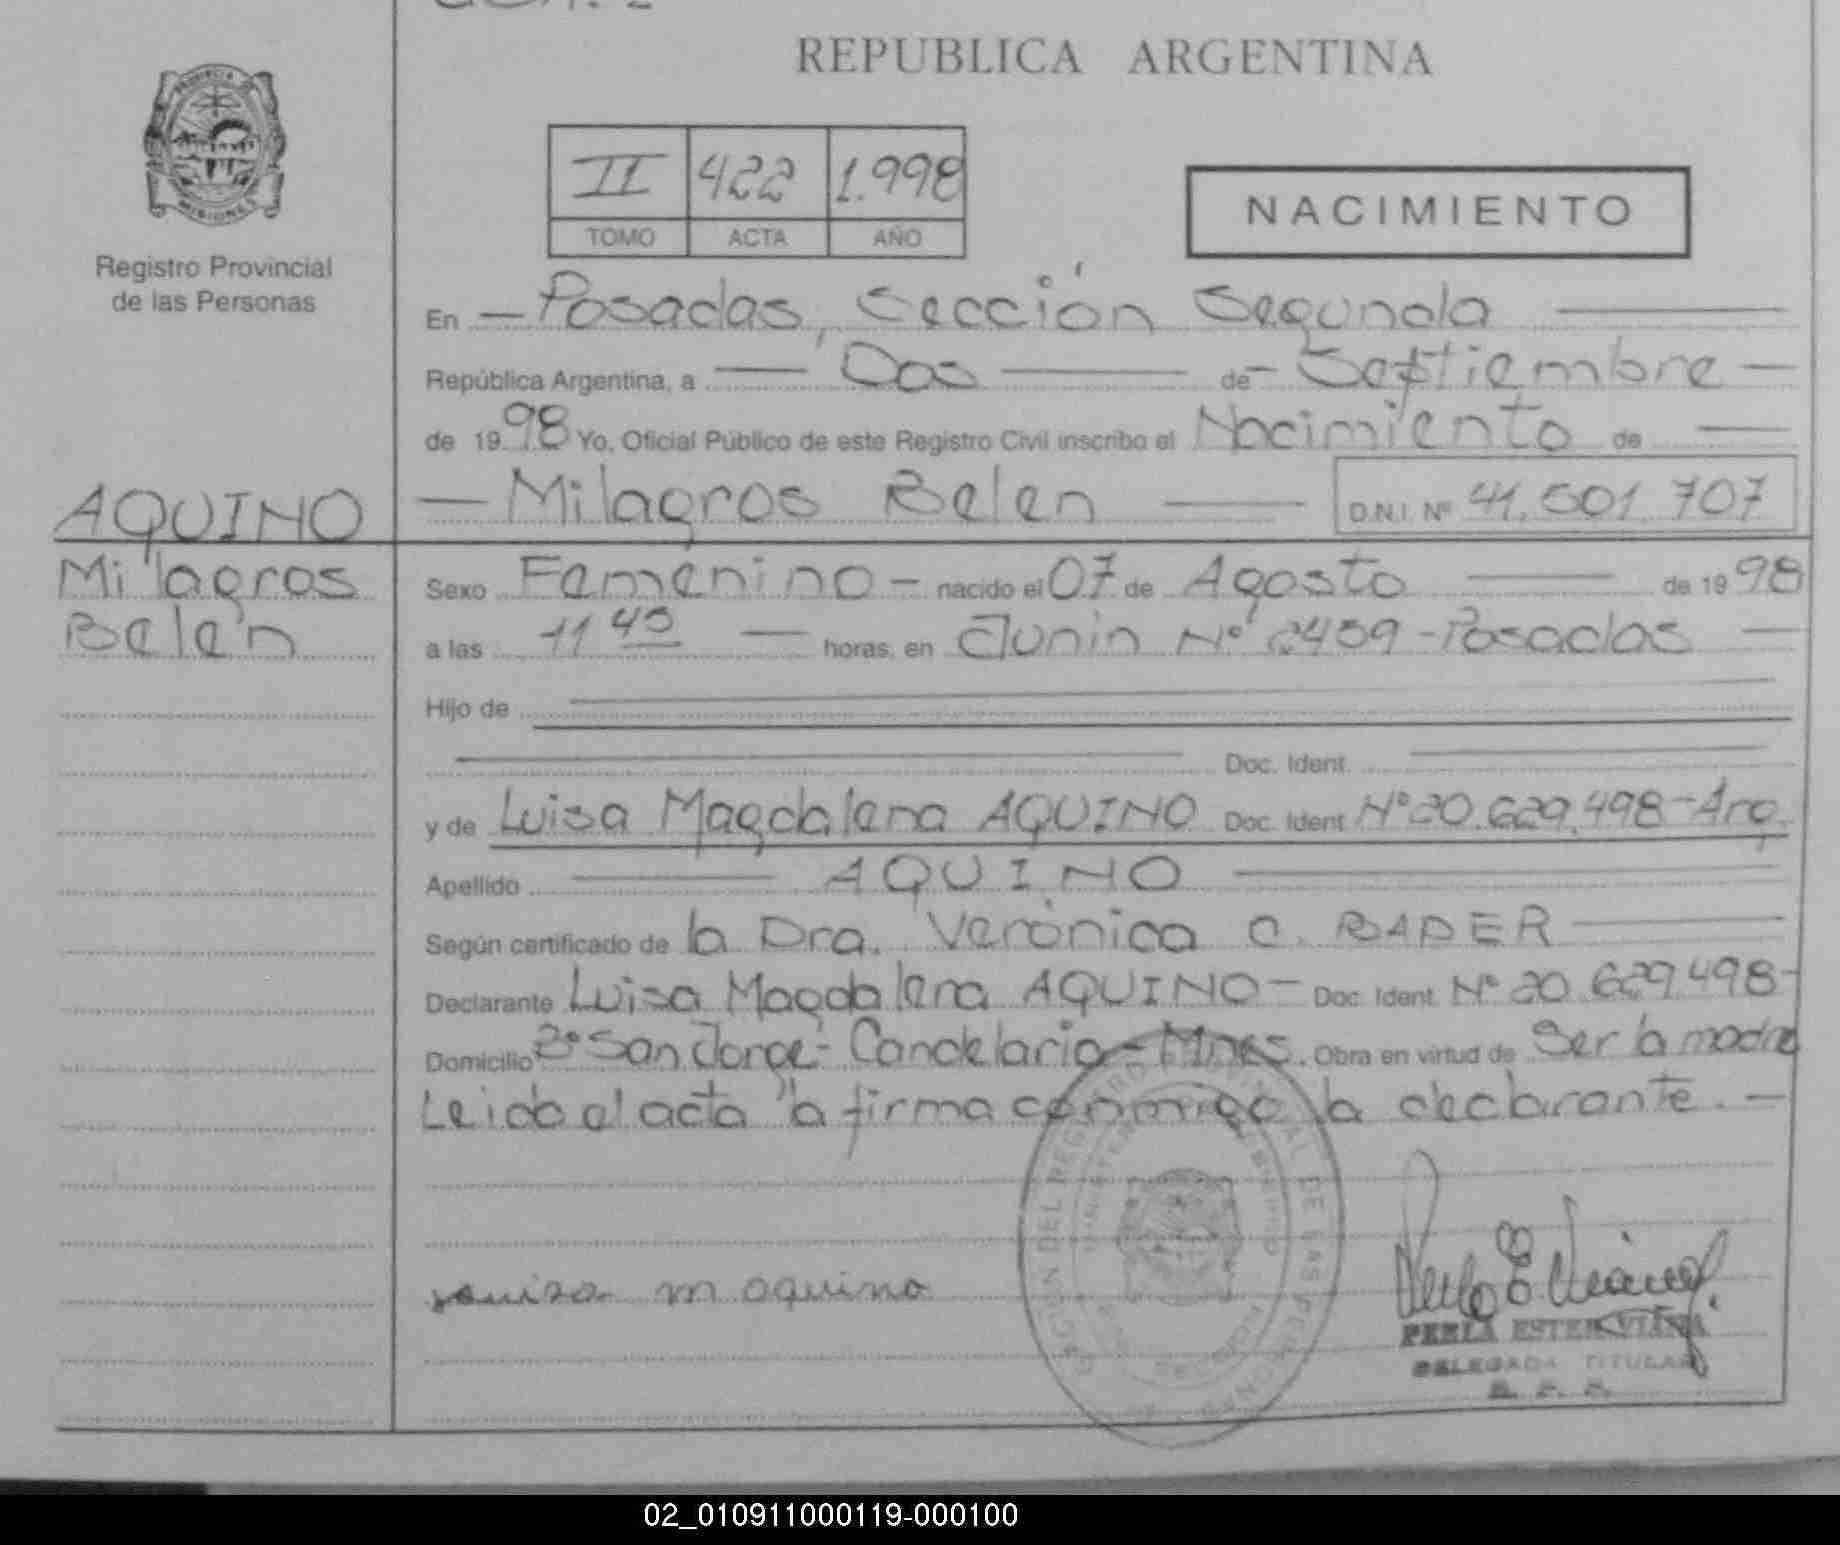 REPUBLICA ARGENTINA
II 422 1.998
TOMO ACTA AÑO
NACIMIENTO
Registro Provincial
de las Personas
En — Posadas, Sección Segunda —
República Argentina, a — Dos — de — Septiembre —
de 1998 Yo, Oficial Público de este Registro Civil inscribo el Nacimiento de —
AQUINO
Milagros
Belén
— Milagros Belen — D.N.I. Nº 41.501.707
Sexo Femenino — nacido el 07 de Agosto — de 1998
a las 11 45 — horas, en Junin Nº 2459 - Posadas —
Hijo de
Doc. Ident.
y de Luisa Magdalena AQUINO Doc. Ident. Nº 20.629.498 - Arg.
Apellido — AQUINO —
Según certificado de la Dra. Verónica C. BADER —
Declarante Luisa Magdalena AQUINO — Doc. Ident. Nº 20.629.498 -
Domicilio Bº San Jorge - Candelaria - Mnes. Obra en virtud de Ser la madre
Leida el acta la firma conmigo la declarante. —
Luisa m aquino
PERLA ESTER VIANA
DELEGADA TITULAR
R. P. P.
02_010911000119-000100